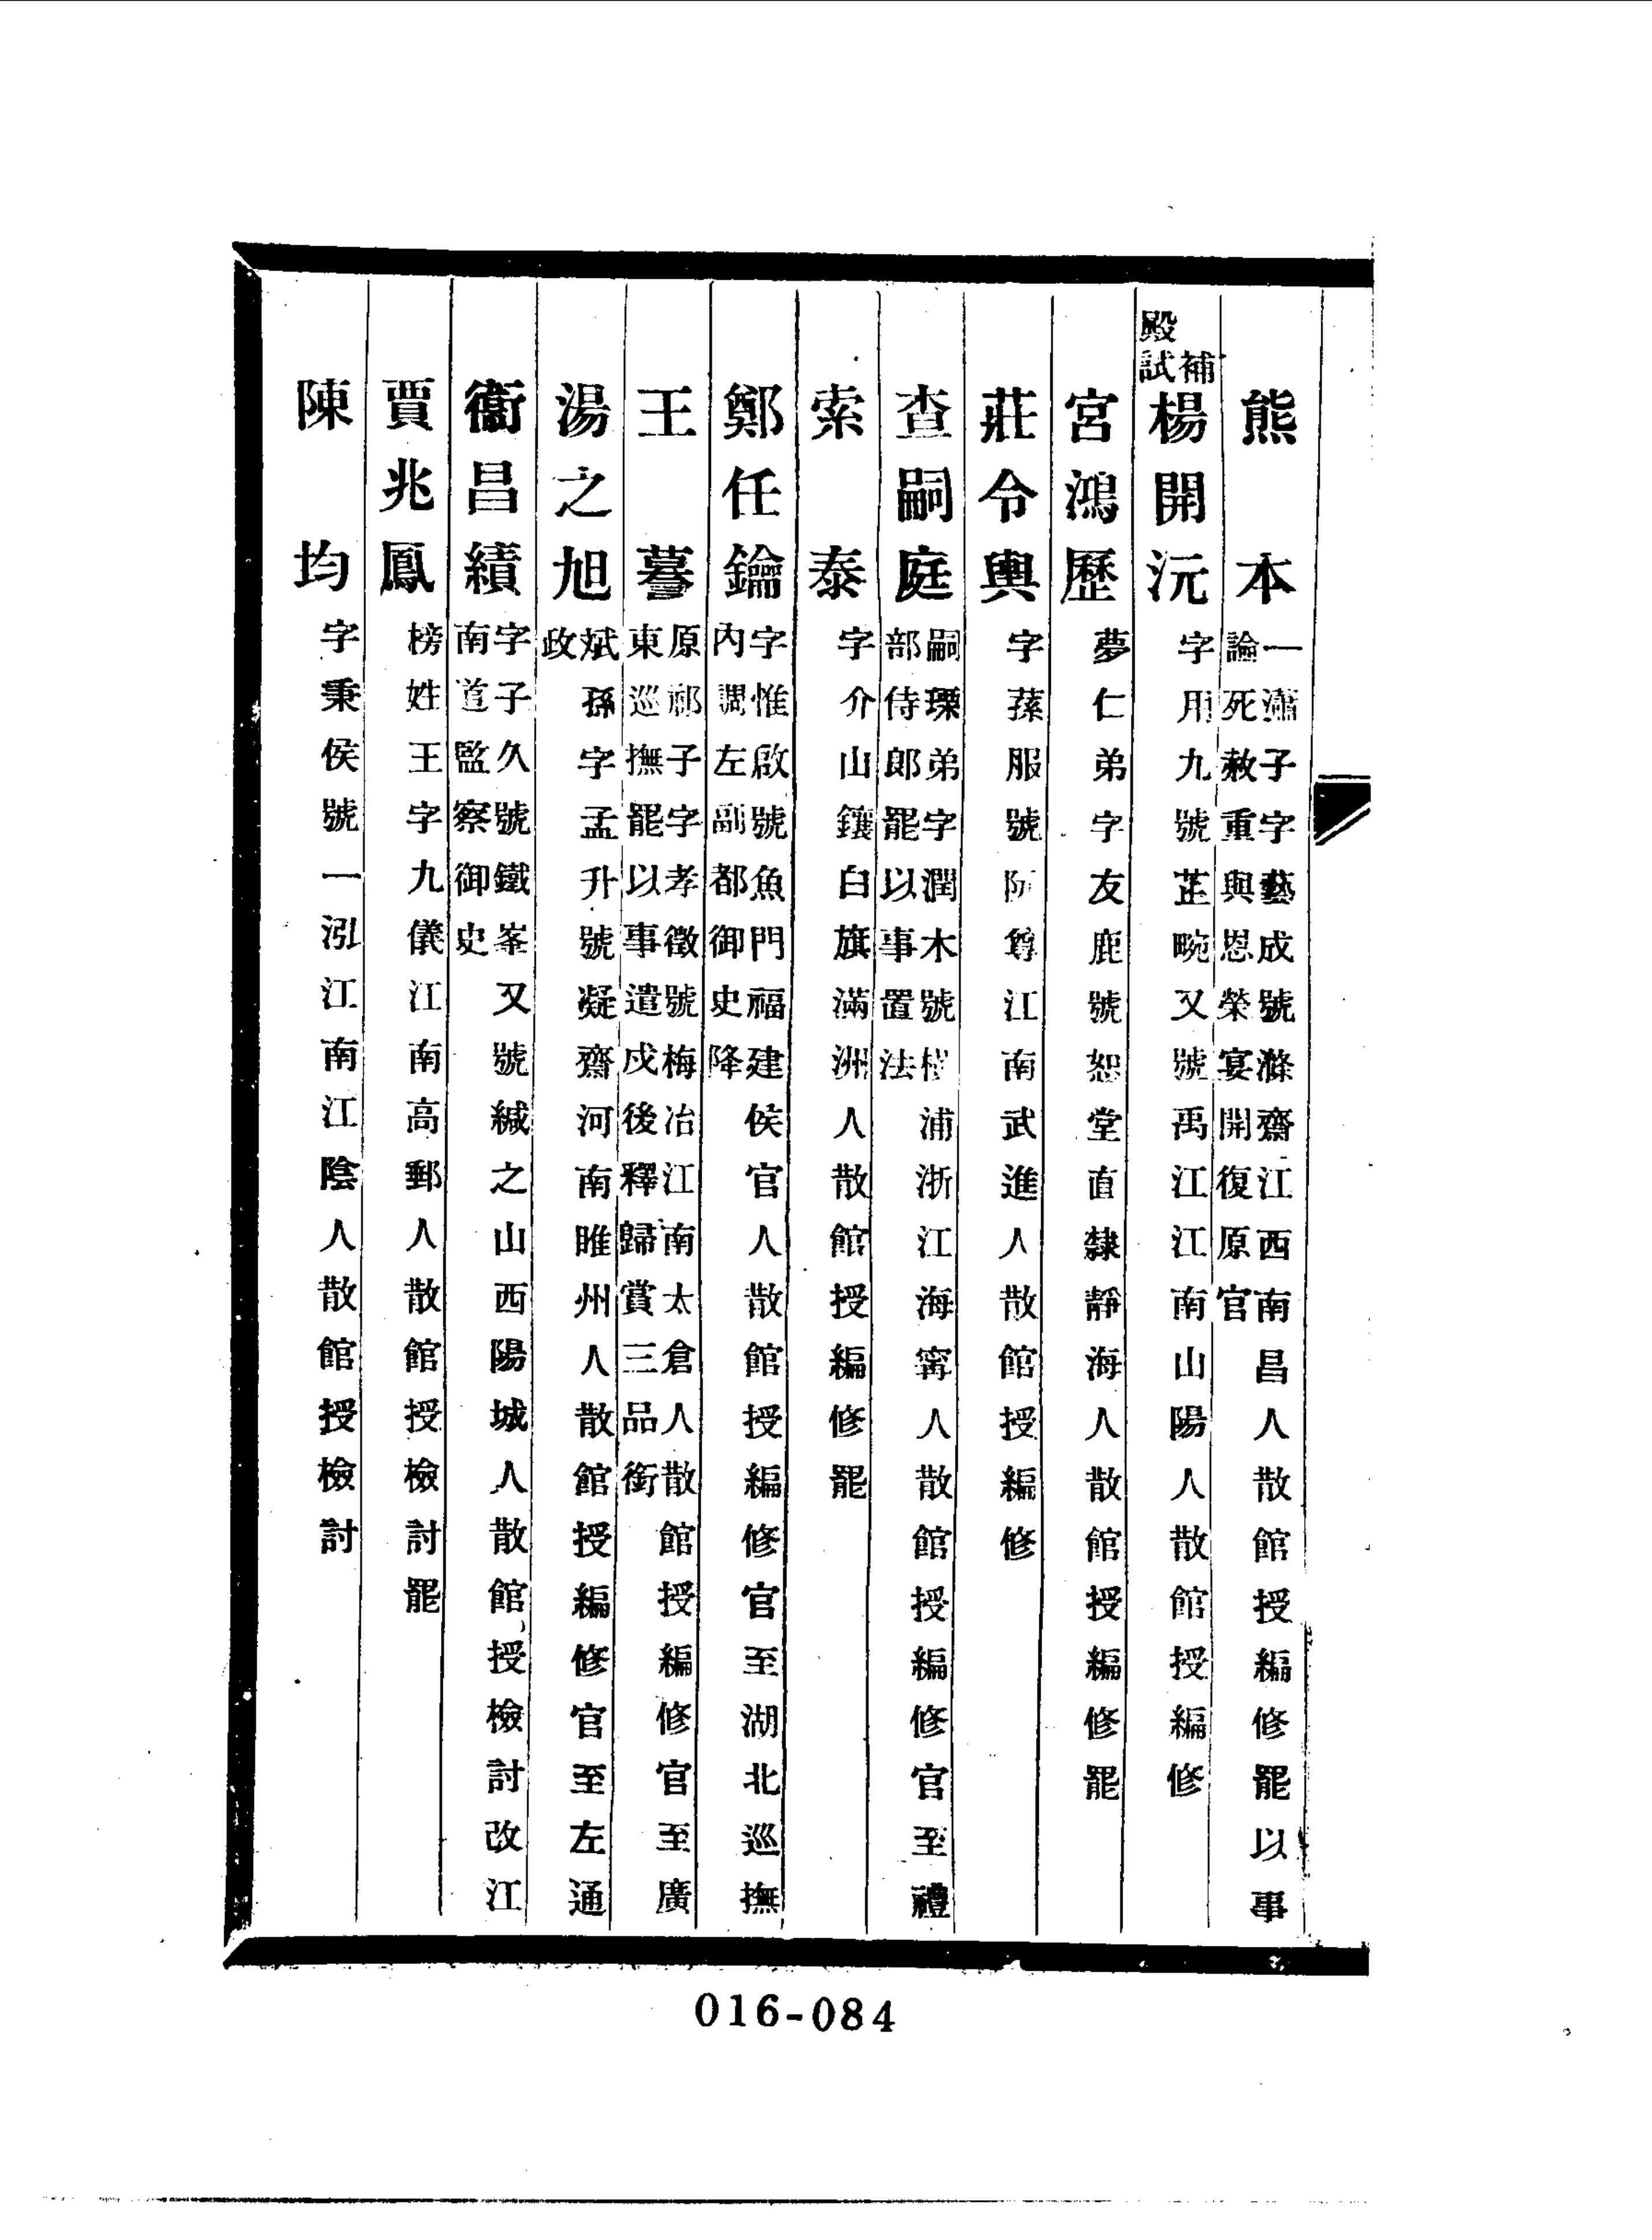 熊本 一瀟子字藝成號滌齋江西南昌人散館授編修罷以事
論死赦重與恩榮宴開復原官
補殿試楊開沅 字用九號芷畹又號禹江江南山陽人散館授編修
宮鴻歷 夢仁弟字友鹿號恕堂直隸靜海人散館授編修罷
莊令輿 字蓀服號阮尊江南武進人散館授編修
查嗣庭 嗣瑮弟字潤木號橫浦浙江海寧人散館授編修官至禮
部侍郎罷以事置法
索泰 字介山鑲白旗滿洲人散館授編修罷
鄭任鑰 字惟啟號魚門福建侯官人散館授編修官至湖北巡撫
內調左副都御史降
王謩 原祁子字孝徵號梅冶江南太倉人散館授編修官至廣
東巡撫罷以事遣戍後釋歸賞三品銜
湯之旭 斌孫字孟升號凝齋河南睢州人散館授編修官至左通
政
衞昌績 字子久號鐵峯又號緘之山西陽城人散館授檢討改江
南道監察御史
賈兆鳳 榜姓王字九儀江南高郵人散館授檢討罷
陳均 字秉侯號一泓江南江陰人散館授檢討
016-084